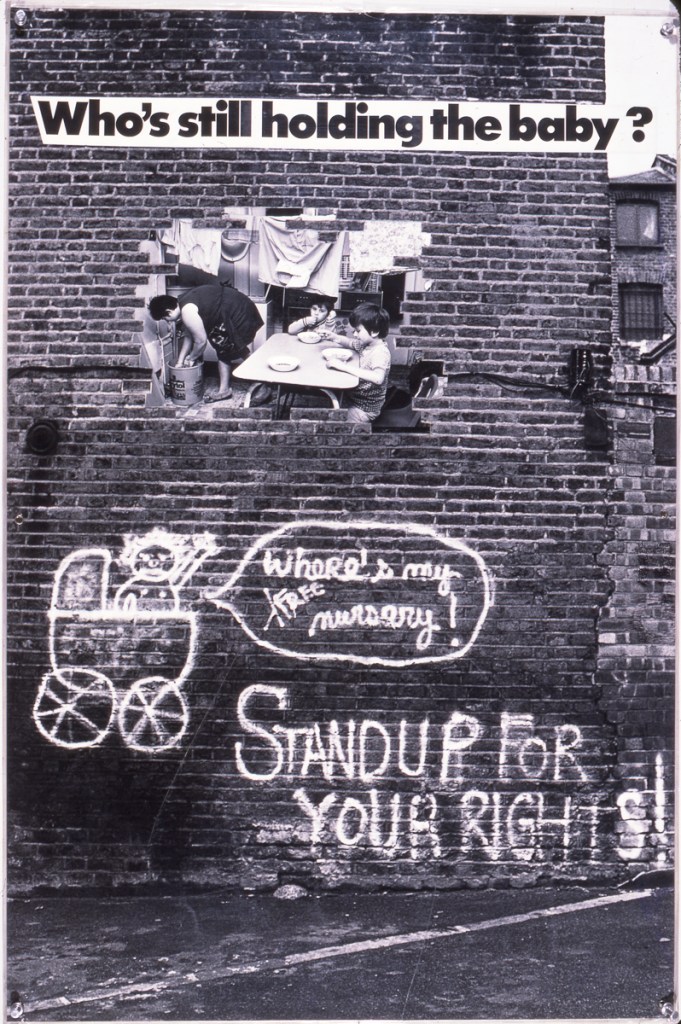 Who's still holding the baby?
Where's my
FREE
nursery!
STAND UP FOR
YOUR RIGHTS!